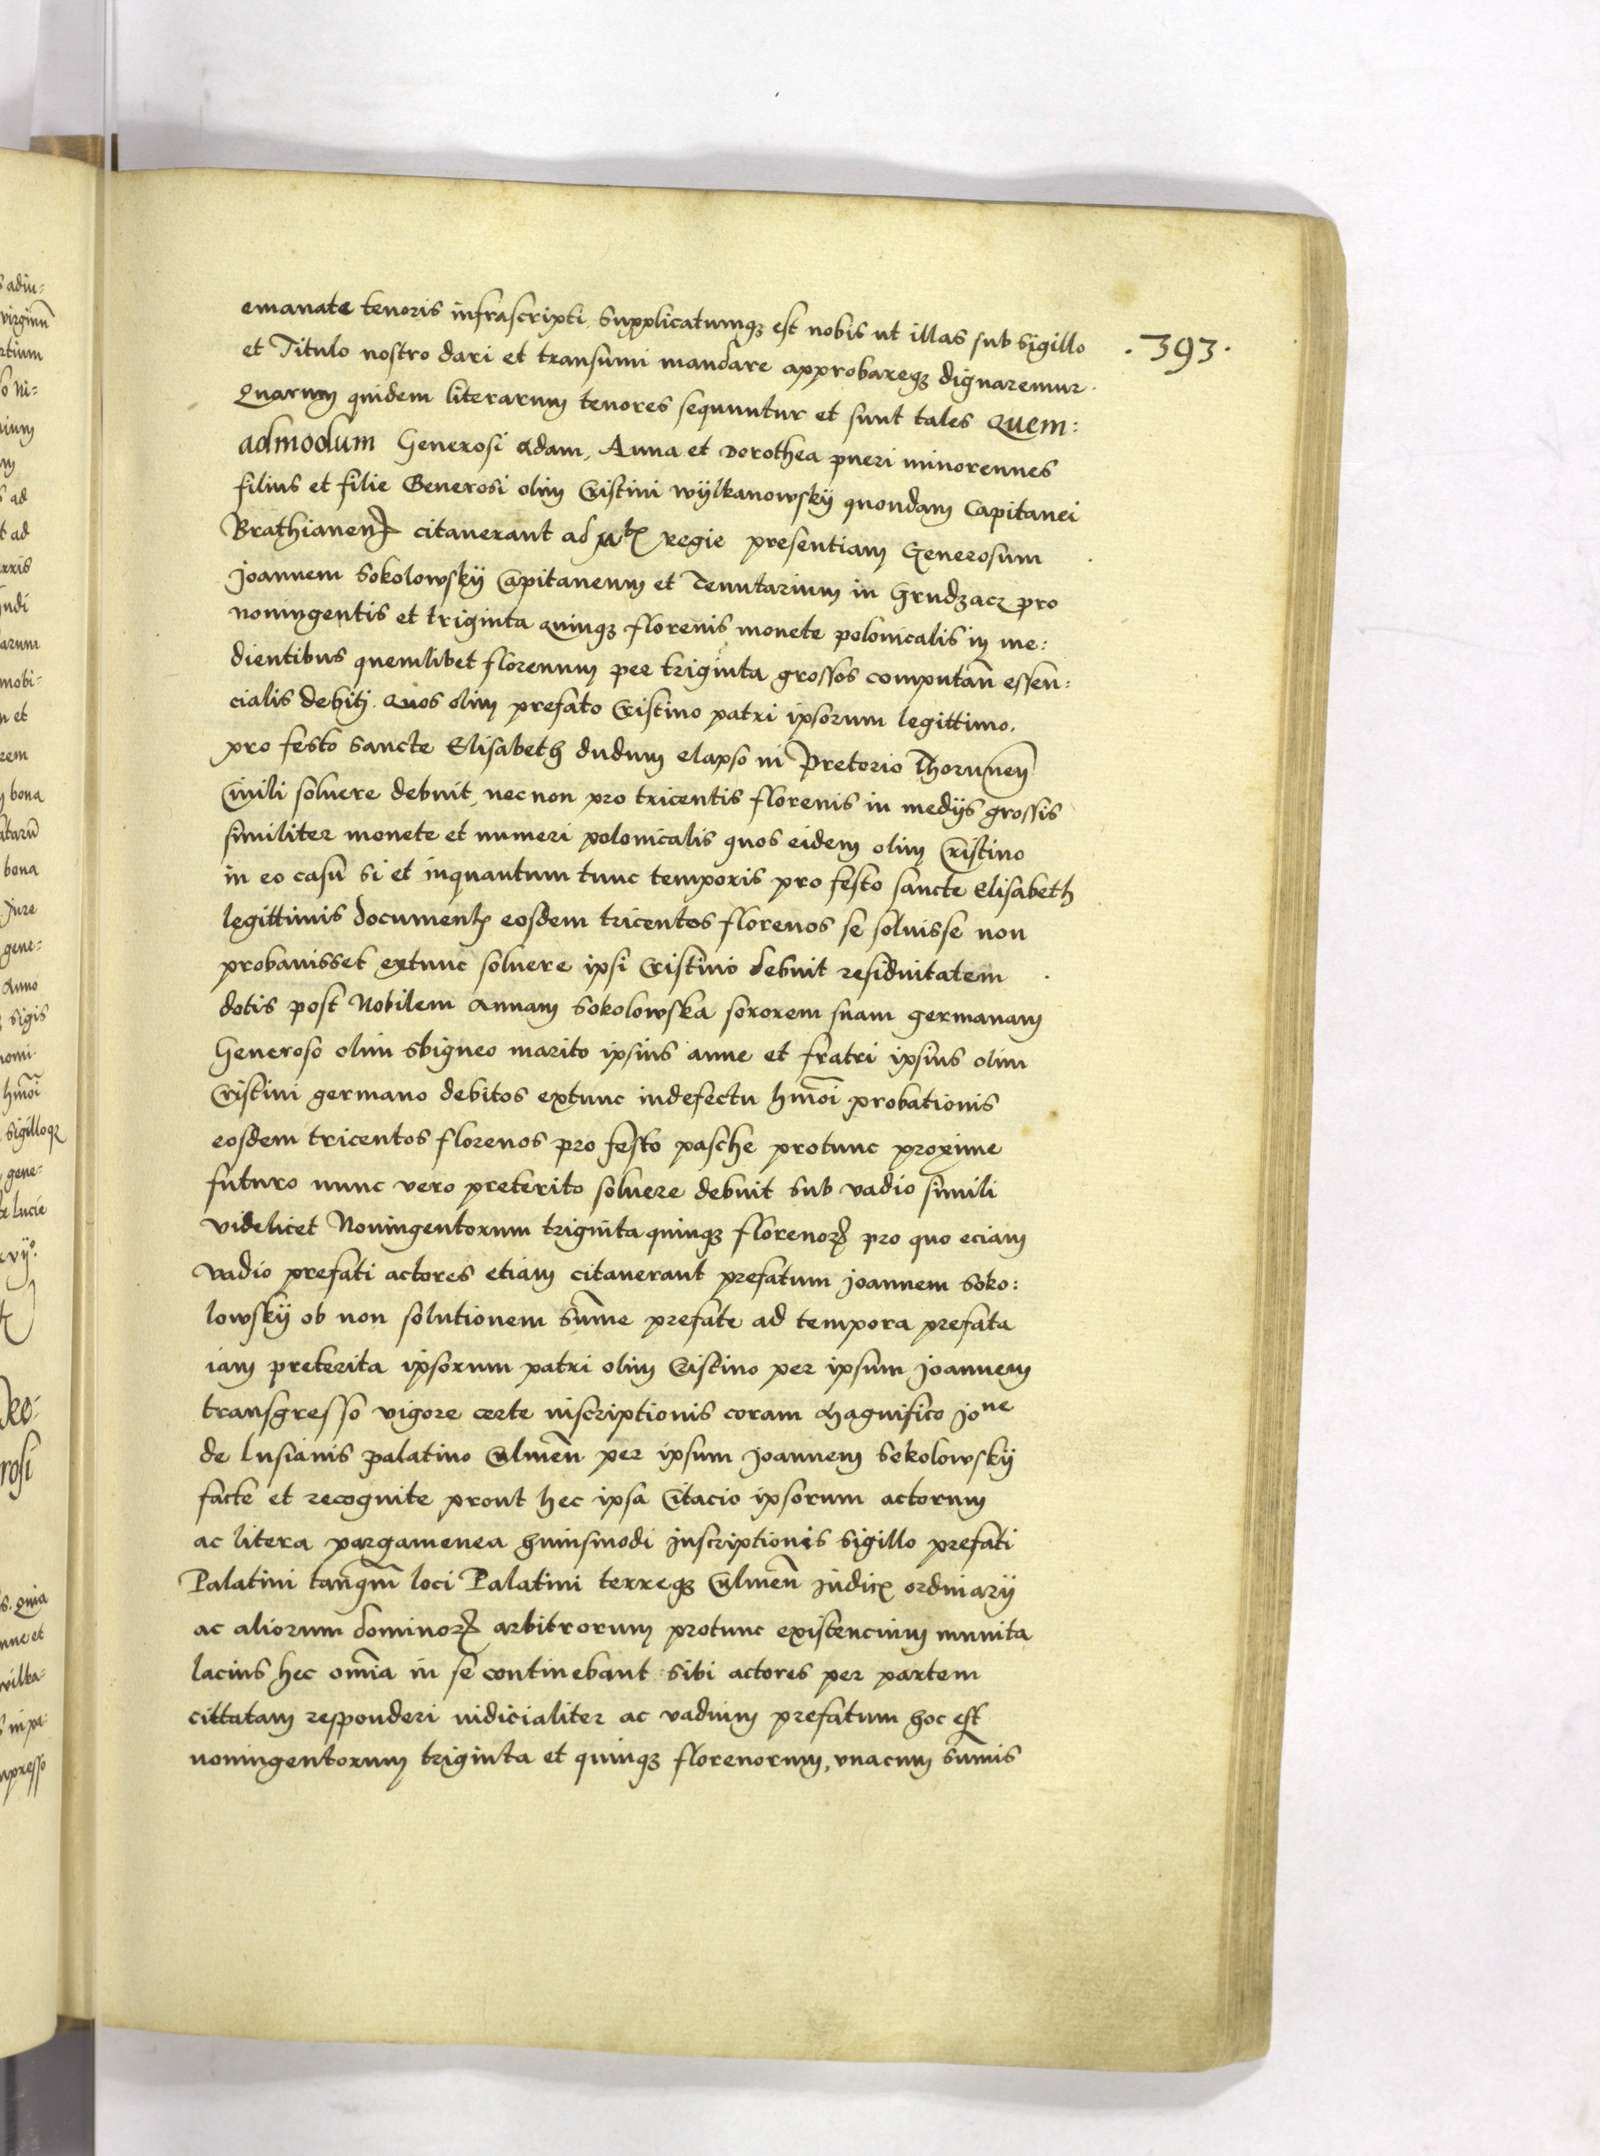 emanate tenoris infrascripti supplicatumqȝ est nobis ut illas sub sigillo
.393.
et Titulo nostro dari et transumi mandare approbareqȝ dignaremur.
Quarum quidem literarum tenores sequuntur et sunt tales Quem:
admodum Generosi Adam, Anna et Dorothea pueri minorennes
filius et filie Generosi olim Cristini wylkanowskÿ quondam Capitanei
Brathianen citauerant ad Mtꝭ regie presentiam Generosum
Joannem Sokolowskÿ Capitaneum et Tenutarium in Grudzacz pro
noningentis et triginta quinqȝ florenis monete polonicalis in me:
dientibus quemlibet florenum per triginta grossos computan̄ essen:
cialis debiti. Quos olim prefato Cristino patri ipsorum legittimo.
pro festo Sancte Elisabeth dudum elapso in Pretorio Thorunen̄
Ciuili soluere debuit, nec non pro tricentis florenis in medÿs grossis
similiter monete et numeri polonicalis quos eidem olim Cristino
in eo casu si et inquantum tunc temporis pro festo sancte Elisabeth
legittimis documentꝭ eosdem tricentos florenos se soluisse non
probauisset extunc soluere ipsi Cristino debuit residuitatem
dotis post Nobilem Annam Sokolowska sororem suam germanam
Generoso olim Sbigneo marito ipsius Anne et fratri ipsius olim
Cristini germano debitos extunc indefectu hm̄oi probationis
eosdem tricentos florenos pro festo pasche protunc proxime
futuro nunc vero preterito soluere debuit sub vadio simili
videlicet Noningentorum triginta quinqȝ florenoꝝ pro quo eciam
vadio prefati actores etiam citauerant prefatum Joannem Soko:
lowskÿ ob non solutionem Sum̄e prefate ad tempora prefata
iam preterita ipsorum patri olim Cristino per ipsum Joannem
transgresso vigore certe inscriptionis coram Magnifico Jone
de Lusianis palatino Culmen̄ per ipsum Joannem Sokolowskÿ
facte et recognite prout hec ipsa Citacio ipsorum actorum
ac litera pargamenea huiusmodi Inscriptionis sigillo prefati
Palatini tanqm̄ loci Palatini terreqȝ Culmen̄ Judicꝭ ordinarÿ
ac aliorum dominoꝝ arbitrorum protunc existencium munita
lacius hec om̄ia in se continebant sibi actores per partem
cittatam responderi iudicialiter ac vadium prefatum hoc est
noningentorum triginta et quinqȝ florenorum, vnacum Sum̄is